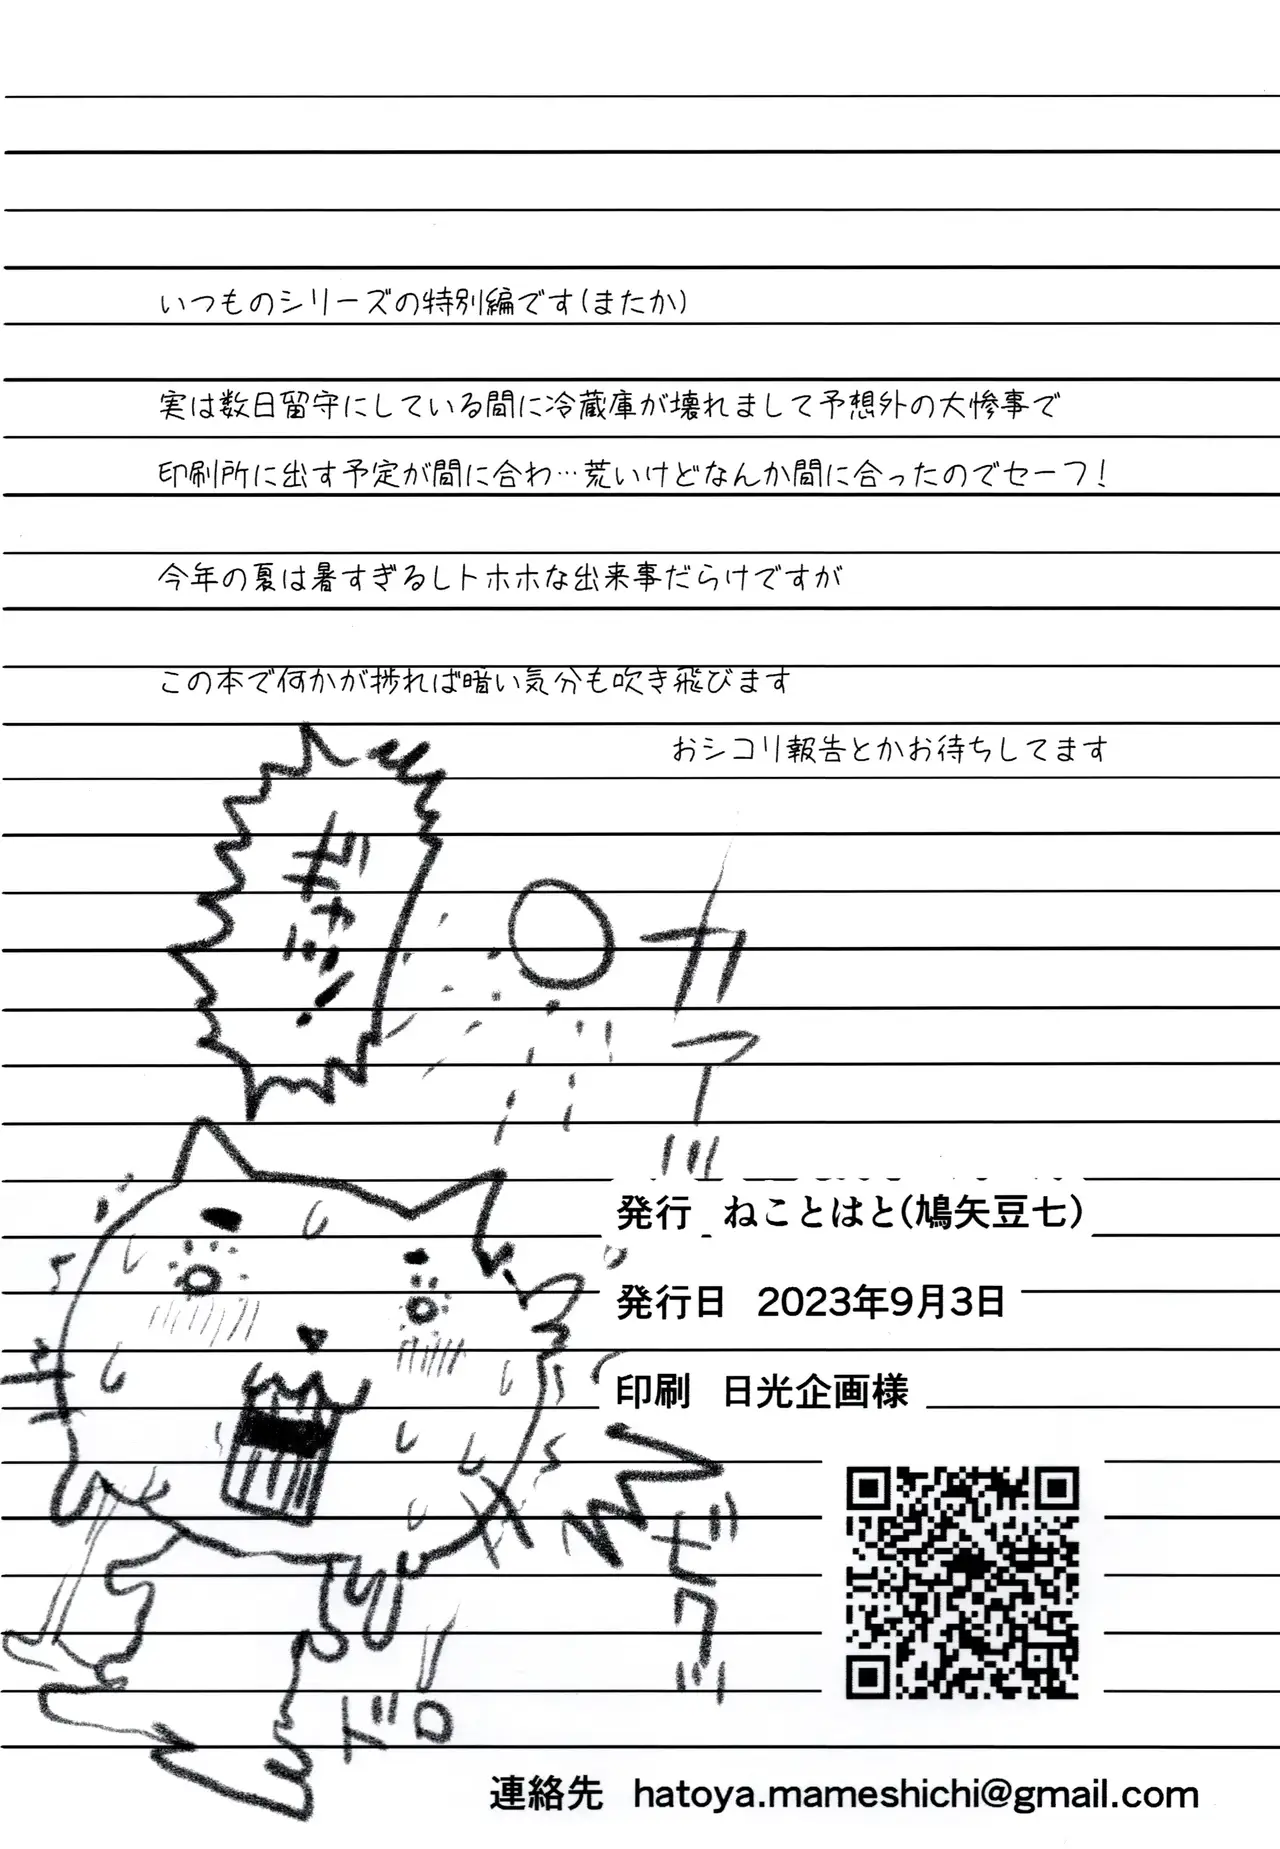 いつものシリーズの特別編です(またか)
実は数日留守にしている間に冷蔵庫が壊れまして予想外の大惨事で
印刷所に出す予定が間に合わ…荒いけどなんか間に合ったのでセーフ！
今年の夏は暑すぎるしトホホな出来事だらけですが
この本で何かが捗れば暗い気分も吹き飛びます
おシコリ報告とかお待ちしてます
カァ
発行 ねことはと(鳩矢豆七)
発行日 2023年9月3日
印刷 日光企画様
ドロ
連絡先 hatoya.mameshichi@gmail.com